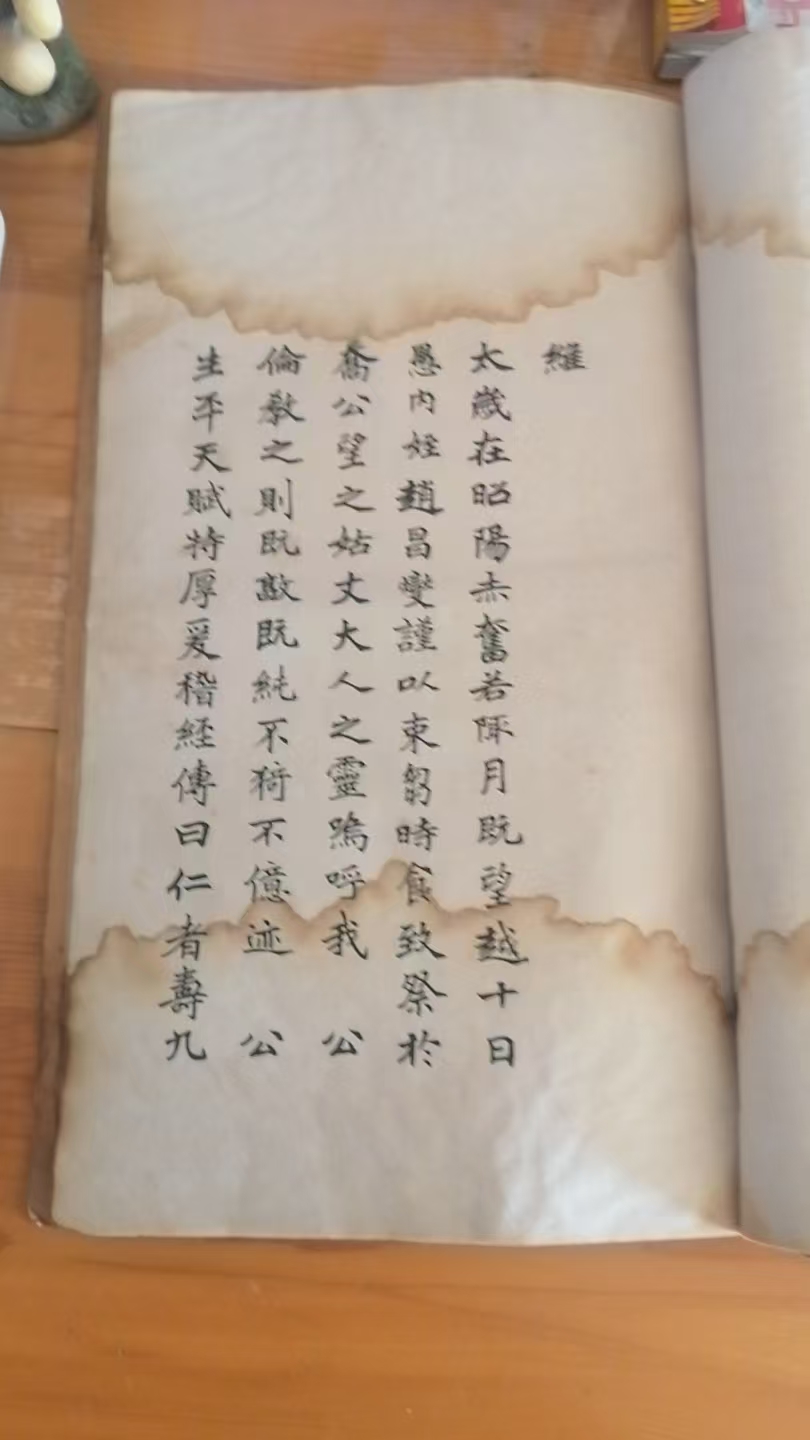 維
太歲在昭陽赤奮若陬月既望越十日
愚内姪趙昌燮謹以束芻時食致祭於
喬公望之姑丈大人之靈鳴呼我公
倫教之則既敬既純不猗不億迹公
生平天賦特厚爰稽經傳曰仁者壽九